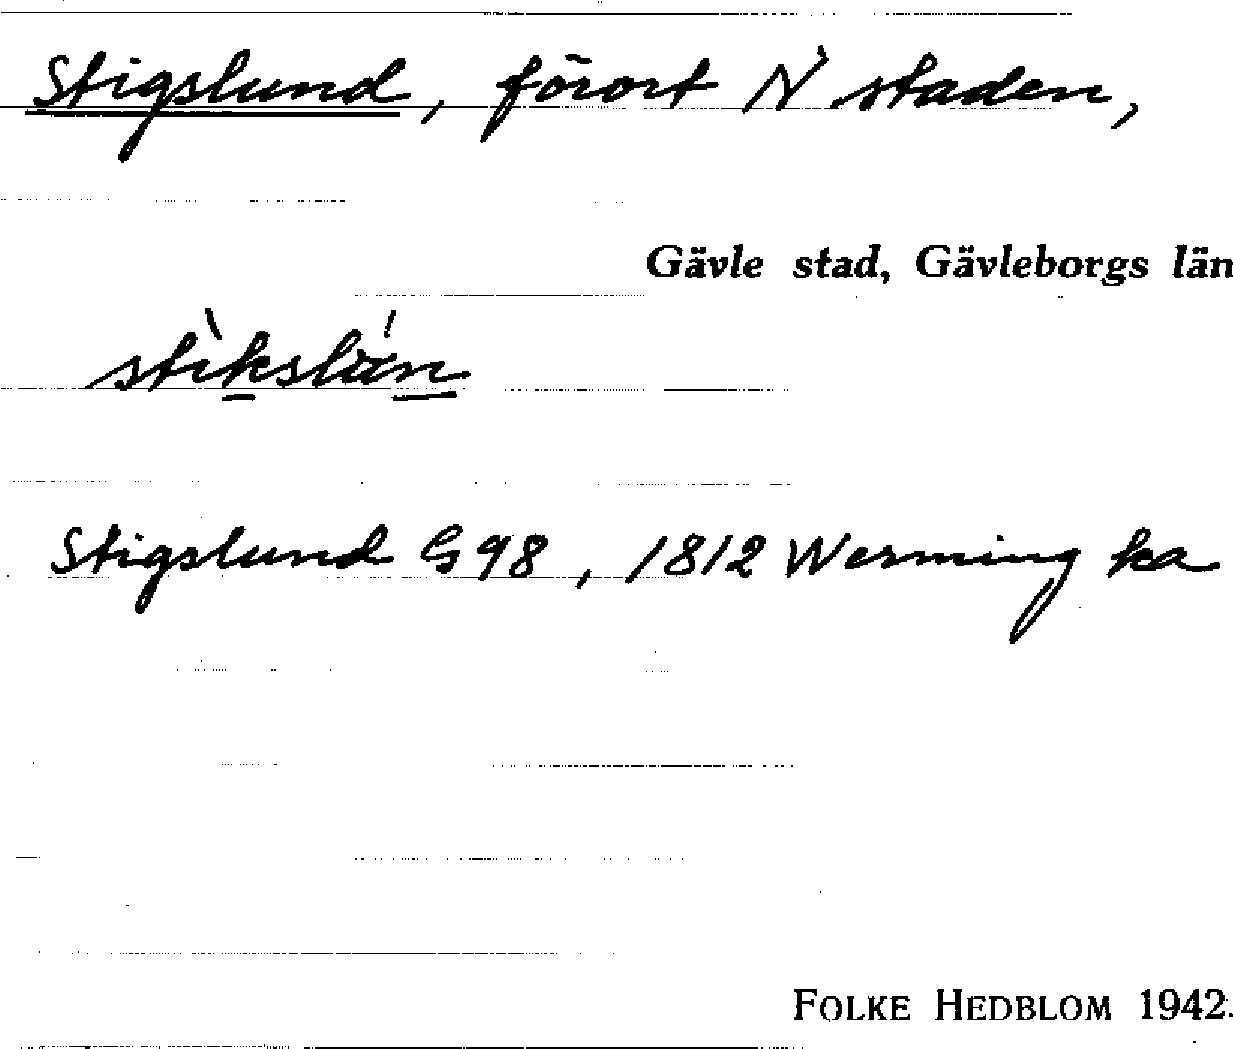 Stigslund, förort N staden,
Gävle stad, Gävleborgs län
Stigslund G 98, 1812 Werming ka
FOLKE HEDBLOM 1942.